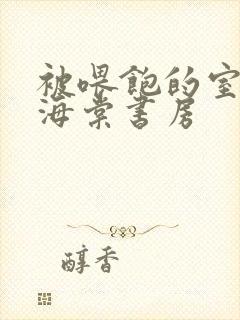 被喂饱的室
海棠书房
醇香